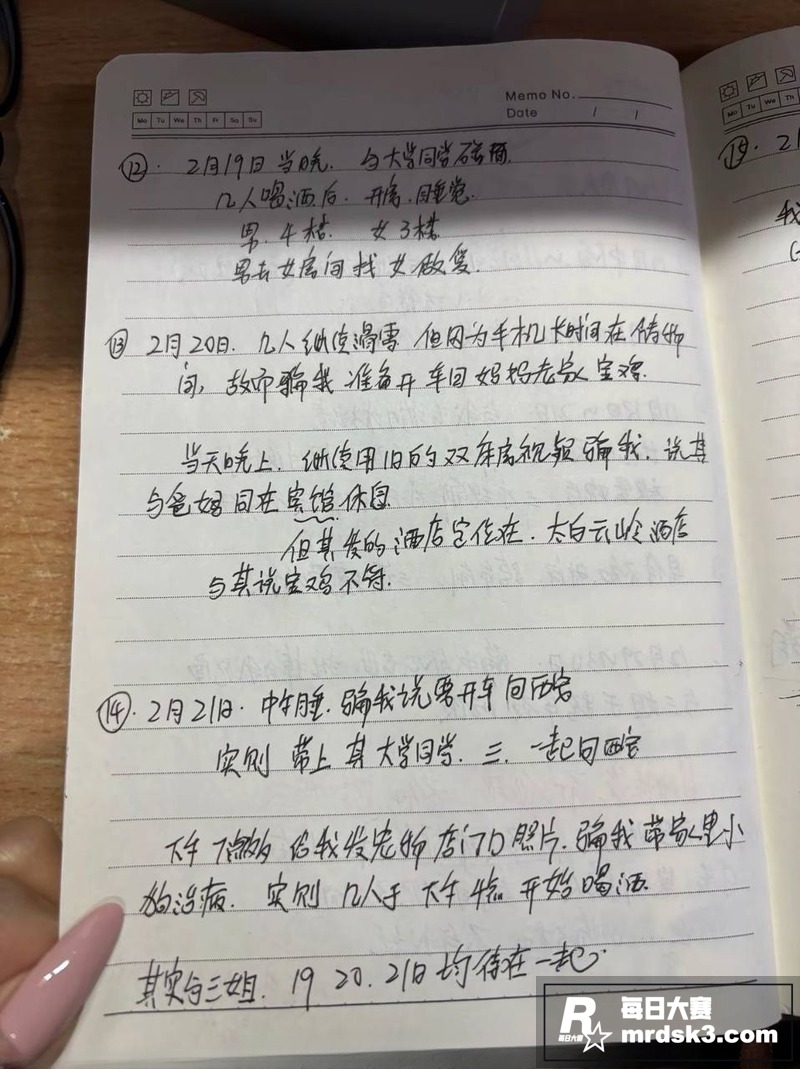 Memo No.
Date / /
Mo Tu We Th Fr Sa Su
⑫. 2月19日当晚. 与大学同学碰面.
几人喝酒后. 开房.睡觉.
男.4楼. 女3楼.
男去女房间找女做爱.
⑬ 2月20日. 几人继续滑雪 但因为手机长时间在储物
间, 故而骗我 准备开车回妈妈老家宝鸡.
当天晚上. 继续用旧的双床房视频骗我. 说其
与爸妈同在宾馆休息
但其发的酒店定位在. 太白云岭酒店
与其说宝鸡不符.
⑭. 2月21日. 中午睡. 骗我说要开车回西安
实则 带上其大学同学. 三. 一起回西安
下午7点多 给我发宠物店门口照片. 骗我带家里小
狗治病. 实则 几人于 下午4点 开始喝酒.
其实与三姐. 19 20. 21日均待在一起.
⑮. 21
我
Mo Tu We Th
R
每日大赛
每日大赛
mrdsk3.com